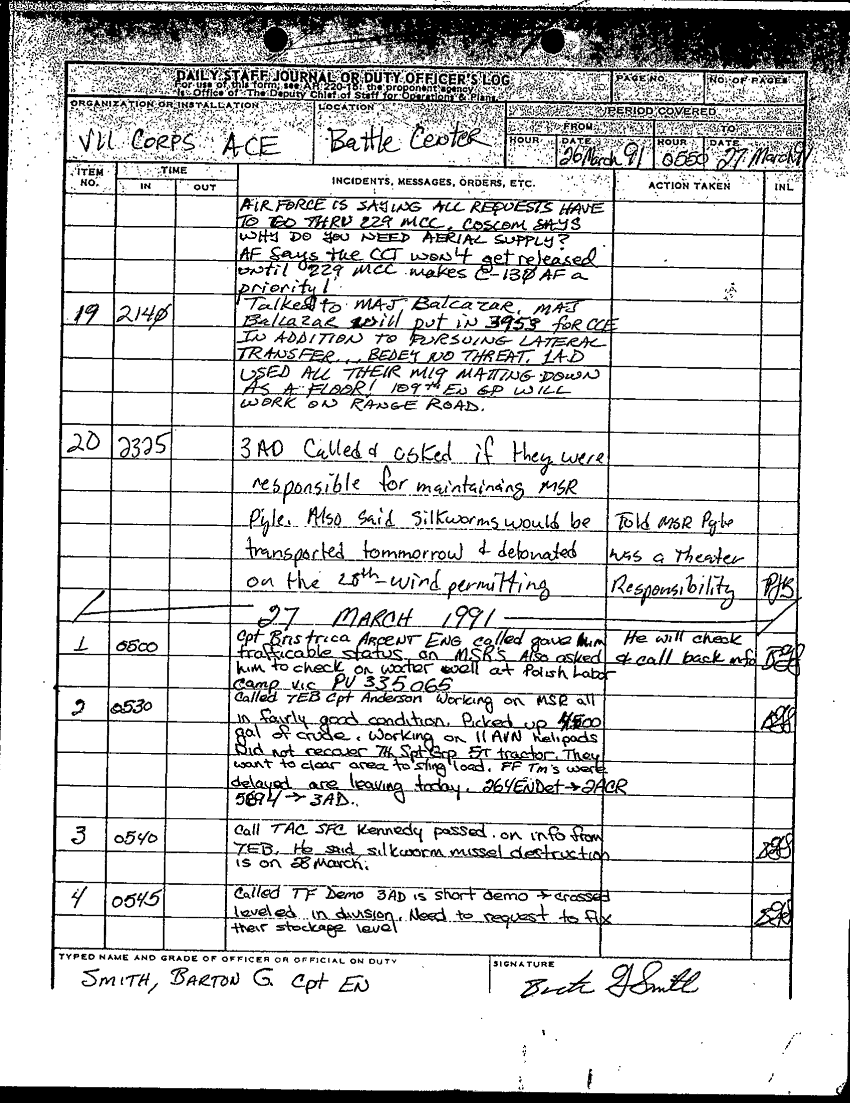 DAILY STAFF JOURNAL OR DUTY OFFICER'S LOG
For use of this form, see AR 220-15; the proponent agency
is Office of The Deputy Chief of Staff for Operations & Plans.
PAGE NO.
NO. OF PAGES
ORGANIZATION OR INSTALLATION
VII CORPS ACE
LOCATION
Battle Center
PERIOD COVERED
FROM
TO
HOUR
DATE
26 March 91
HOUR
0550
DATE
27 March 91
ITEM NO.
TIME
IN
OUT
INCIDENTS, MESSAGES, ORDERS, ETC.
ACTION TAKEN
INL
AIR FORCE IS SAYING ALL REQUESTS HAVE
TO GO THRU 229 MCC, COSCOM SAYS
WHY DO YOU NEED AERIAL SUPPLY?
AF Says the CCT won't get released
until 229 MCC makes C-130 AF a
priority!
19 2140
Talked to MAJ Balcazar. MAJ
Balcazar will put in 3953 for CCE
IN ADDITION TO PURSUING LATERAL
TRANSFER... BEDEY NO THREAT. 1AD
USED ALL THEIR M19 MATTING DOWN
AS A FLOOR! 109TH EN GP WILL
WORK ON RANGE ROAD.
20 2325
3AD Called & asked if they were
responsible for maintaining MSR
Pyle. Also said Silkworms would be
transported tommorrow & detonated
on the 28th - wind permitting
Told MSR Pyle
was a Theater
Responsibility
PJB
27 MARCH 1991
1 0500
Cpt Bristrica ARCENT ENG called gave him
trafficable status on MSR's Also asked
him to check on water well at Polish Labor
camp vic PV 335065
He will check
& call back info
2 0530
Called 7EB Cpt Anderson Working on MSR all
in fairly good condition. Picked up 4500
gal of crude. Working on 11 AVN helipads
Did not recover 7th Spt Grp 5T tractor. They
want to clear area to sling load. FF Tm's were
delayed are leaving today. 264 ENDet → 2ACR
5694 → 3AD..
3 0540
Call TAC SFC Kennedy passed on info from
7EB. He said silkworm missel destruction
is on 28 March.
4 0545
Called TF Demo 3AD is short demo → crossed
leveled in division. Need to request to fix
their stockage level
TYPED NAME AND GRADE OF OFFICER OR OFFICIAL ON DUTY
SMITH, BARTON G. Cpt EN
SIGNATURE
Barton G Smith